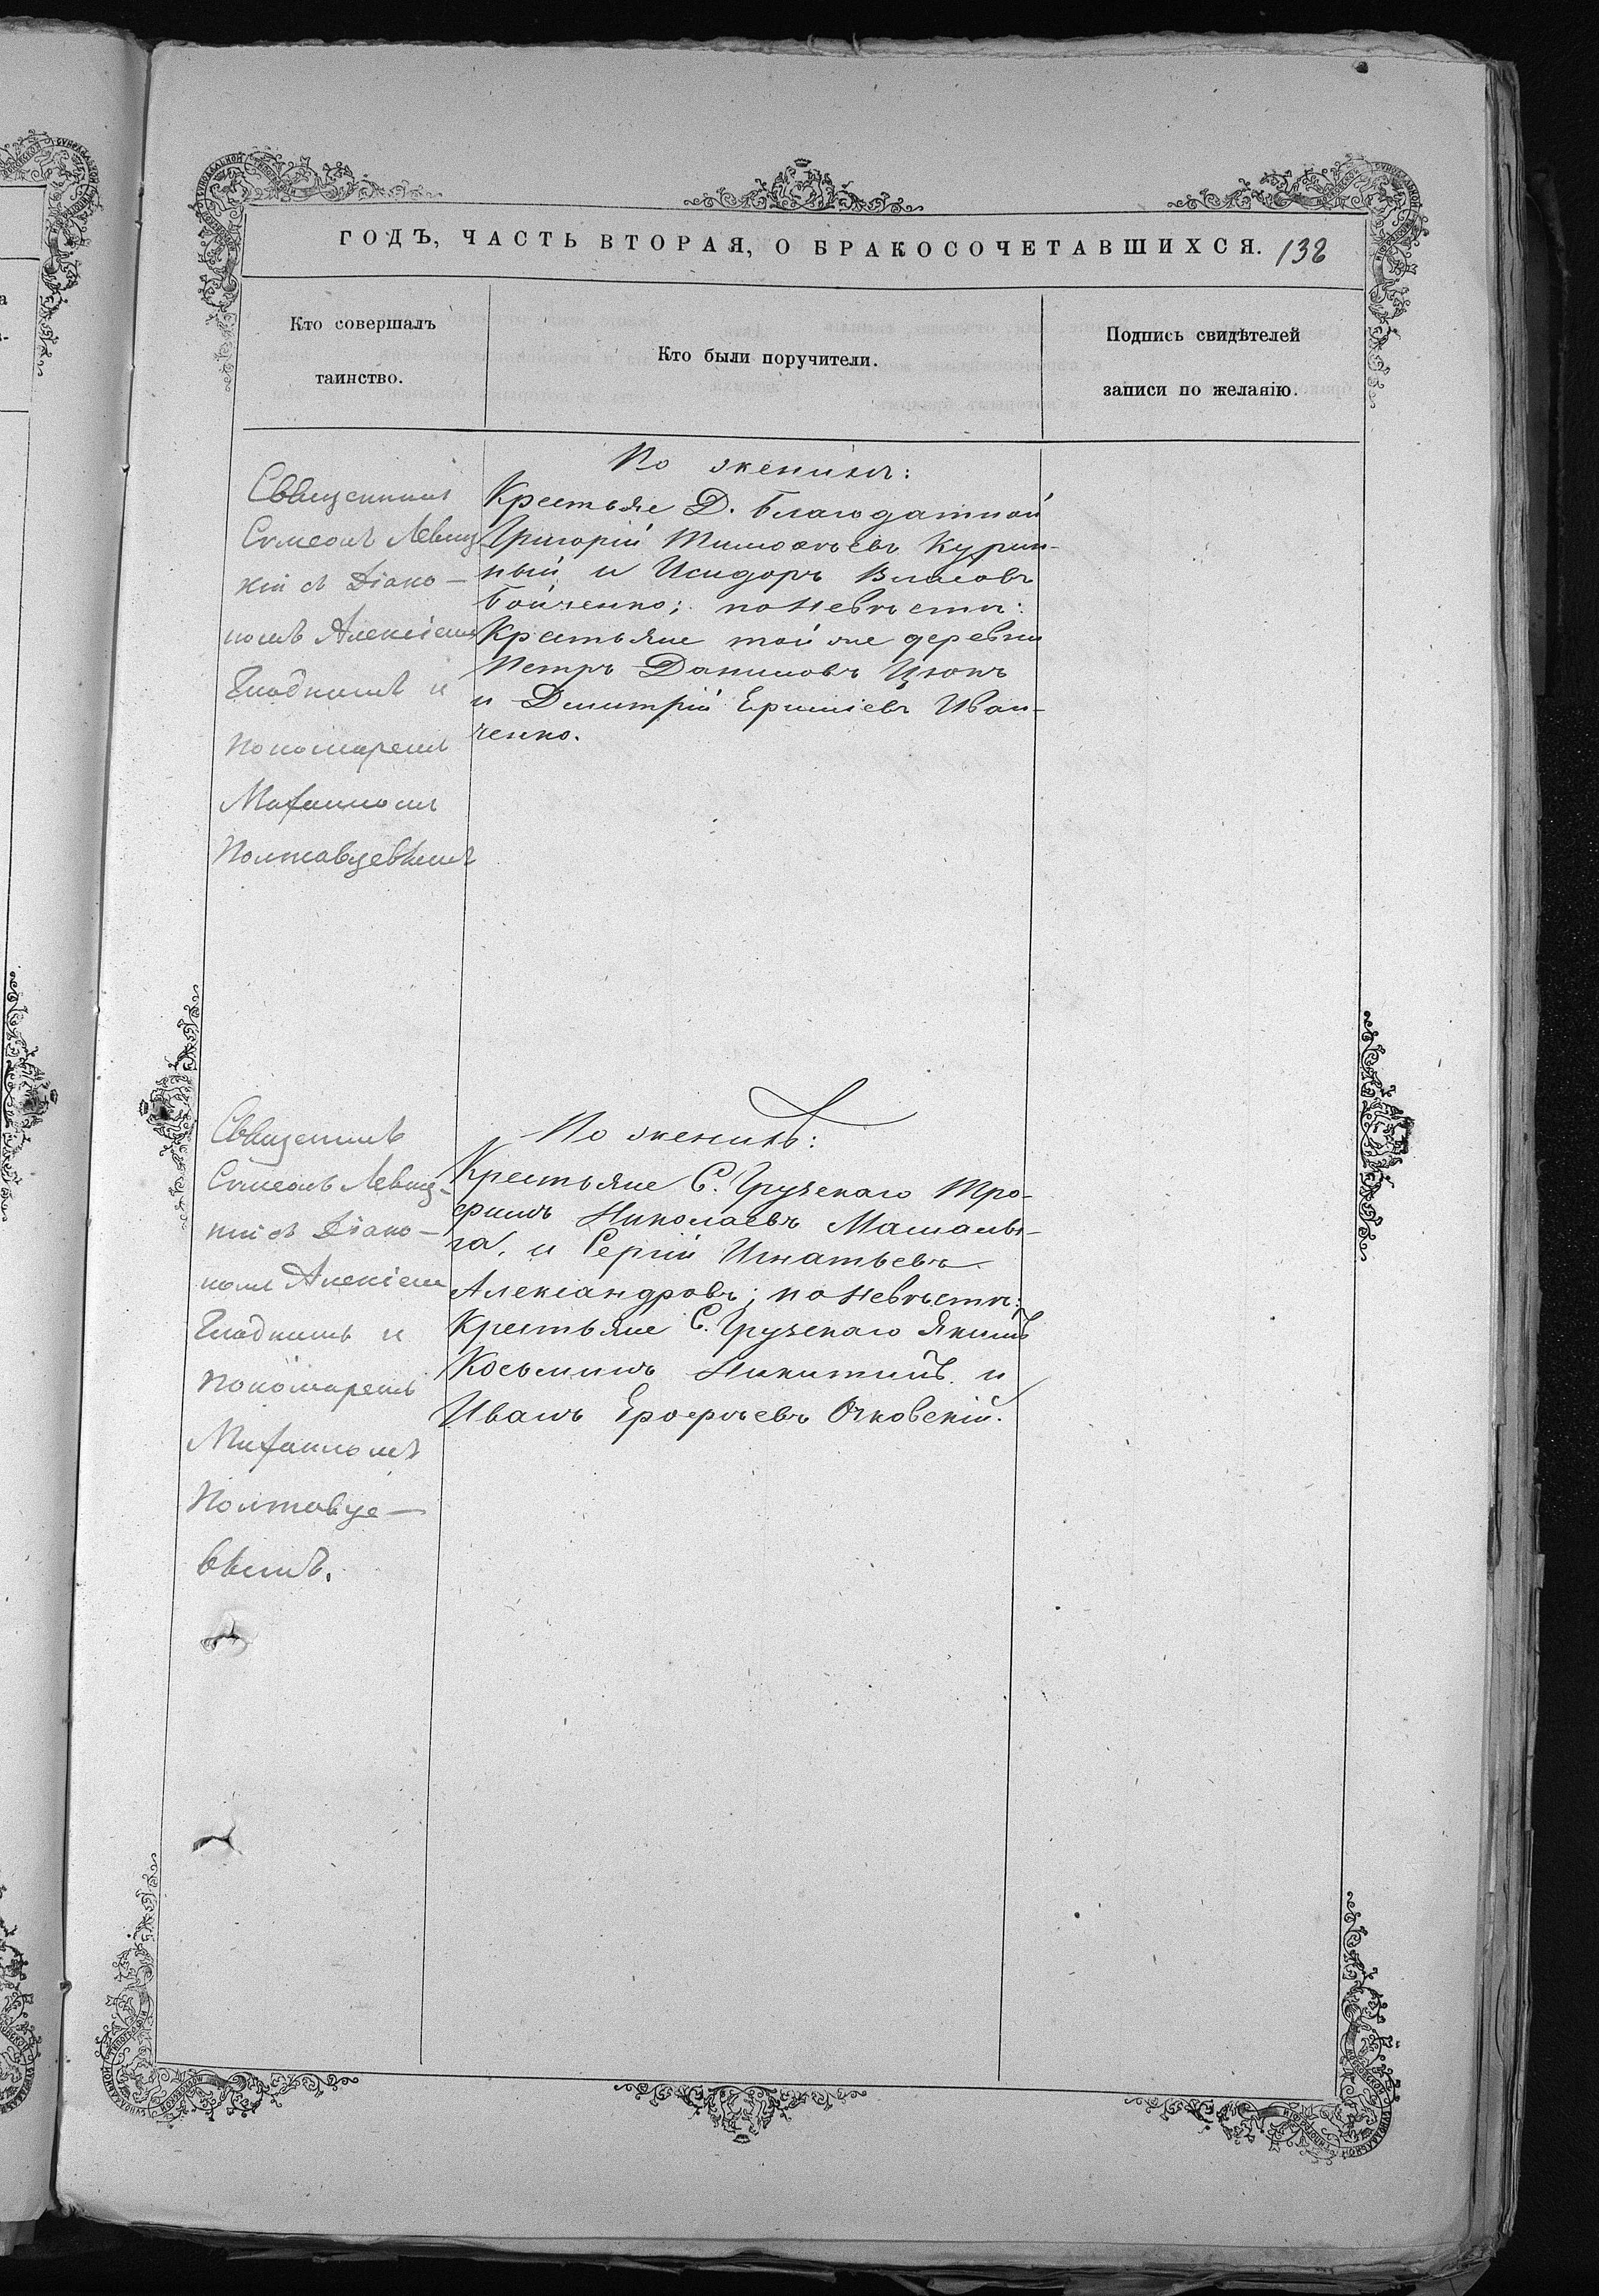 ГОДЪ, ЧАСТЬ ВТОРАЯ, О БРАКОСОЧЕТАВШИХСЯ. 138
Кто совершалъ
таинство.
Кто были поручители.
Подпись свидѣтелей
записи по желанію.
Священникъ
Симеонъ Левиц
кій съ Діако-
номъ Алексіемъ
Гладкимъ и
пономаремъ
Михаиломъ
Полтавцевымъ
По женихѣ:
Крестьяне Д. Благодатной
Григорій Тимоѳеевъ Курин-
ный и Исидоръ Власовъ
Бойченко; по невѣстѣ:
Крестьяне той же деревни
Петръ Даниловъ Цюпъ
и Димитрій Ермиіевъ Иван-
ченко.
Священникъ
Симеонъ Левиц-
кій съ Діако-
номъ Алексіемъ
Гладкимъ и
пономаремъ
Михаиломъ
Полтавце-
вымъ.
По женихѣ:
Крестьяне С. Грузскаго Тро-
фимъ Николаевъ
и Сергій Игнатьевъ
Александровъ; по невѣстѣ:
Крестьяне С. Грузскаго Якимъ
Косьминъ Никитинъ и
Иванъ Ерофѣевъ Очковскій.